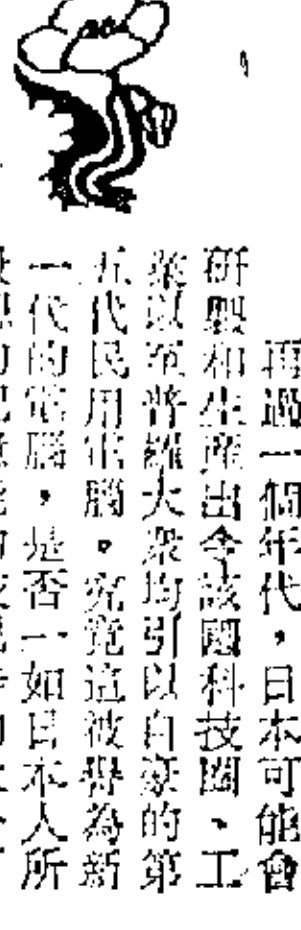 再過一個年代，日本可能會
研製和生產出令該國科技圈、工
業以至普羅大眾均引以自豪的第
五代民用電腦。究竟這被譽為新
一代的電腦，是否一如日本人所